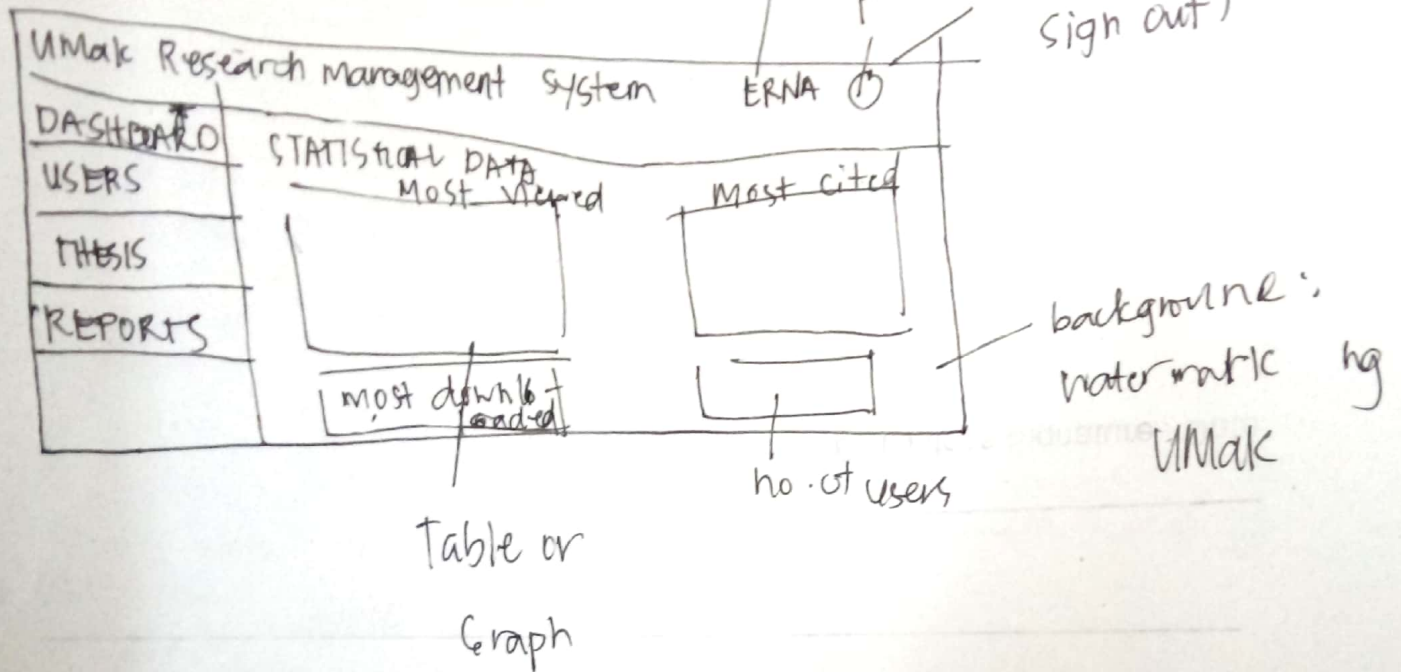 sign out)
UMak Research Management System ERNA
DASHBOARD
USERS
THESIS
REPORTS
STATISTICAL DATA
Most Viewed
Most cited
most downlo-
oaded
no. of users
Table or
Graph
background:
watermark ng
UMak